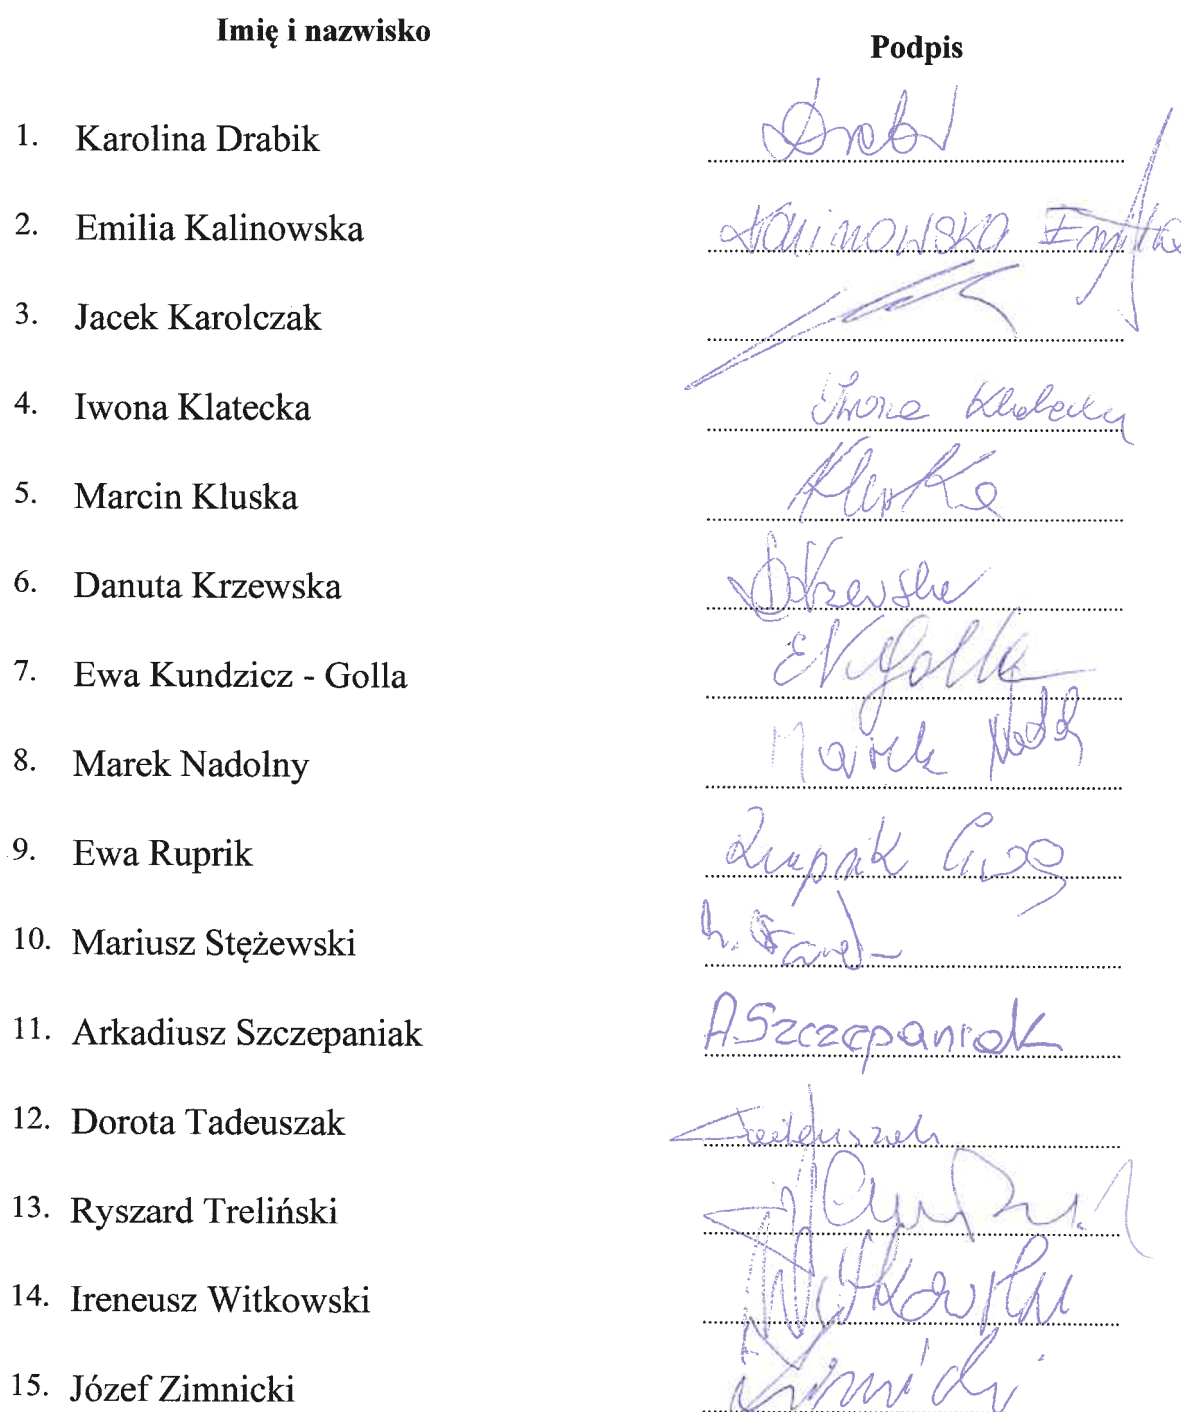 Imię i nazwisko Podpis
1. Karolina Drabik Drabik
2. Emilia Kalinowska Kalinowska Emilia
3. Jacek Karolczak
4. Iwona Klatecka Iwona Klatecka
5. Marcin Kluska Kluska
6. Danuta Krzewska DKrzewska
7. Ewa Kundzicz - Golla EKGolla
8. Marek Nadolny Marek
9. Ewa Ruprik Ruprik Ewa
10. Mariusz Stężewski
11. Arkadiusz Szczepaniak A.Szczepaniak
12. Dorota Tadeuszak Tadeuszak
13. Ryszard Treliński
14. Ireneusz Witkowski Witkowski
15. Józef Zimnicki Zimnicki